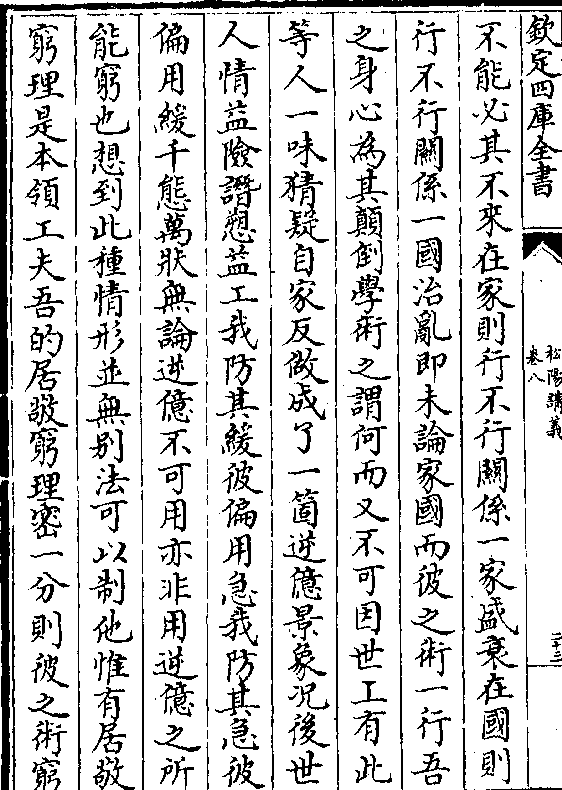 欽定四庫全書
松陽講義
卷八
二十三
不能必其不來在家則行不行關係一家盛衰在國則
行不行關係一國治亂即未論家國而彼之術一行吾
之身心為其顛倒學術之謂何而又不可因世上有此
等人一味猜疑自家反做成了一箇逆億景象况後世
人情益險譖愬益工我防其緩彼偏用急我防其急彼
偏用緩千態萬狀無論逆億不可用亦非用逆億之所
能窮也想到此種情形並無别法可以制他惟有居敬
窮理是本領工夫吾的居敬窮理密一分則彼之術窮